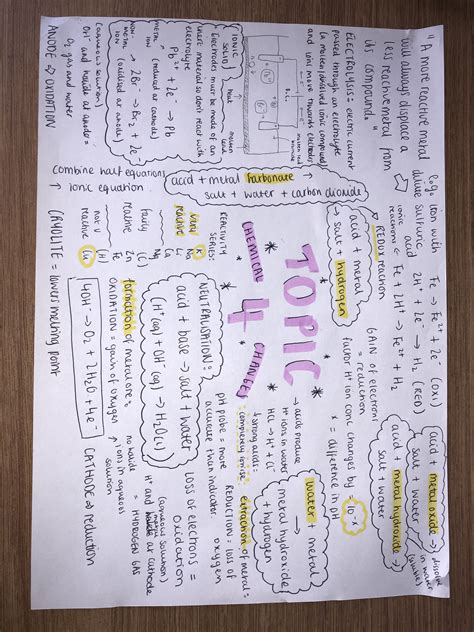 "A more reactive metal
will always displace a
less reactive metal from
its compound."
ELECTROLYSIS = electric current
passed through an electrolyte
(a molten/dissolved ionic compound)
and ions move towards electrodes
D.C.
molten lead
IONIC
SOLID
heat
molten
Electrodes must be made of an
inert material so dont react with
electrolyte
Pb²⁺ + 2e⁻ → Pb
metal (reduced at cathode)
ion
2Br⁻ → Br₂ + 2e⁻
non-
metal (oxidised at anode)
ion
(aqueous solution)
OH⁻ and halide at anode =
O₂ gas and water
ANODE ⇒ OXIDATION
e.g. iron with
dilute sulfuric
acid
Fe → Fe²⁺ + 2e⁻ (OXI)
2H⁺ + 2e⁻ → H₂ (RED)
ionic
reactions
Fe + 2H⁺ → Fe²⁺ + H₂
REDOX reaction
acid + metal
→ salt + hydrogen
acid + metal carbonate
salt + water + carbon dioxide
Combine half equations
↑ ionic equation
REACTIVITY
SERIES:
very
reactive
K
Na
Li
Ca
Mg
fairly
reactive
(C)
Zn
Fe
not v
reactive
(H)
Cu
CRYOLITE = lowers melting point
TOPIC
4
CHEMICAL
CHANGES
GAIN of electrons
= reduction
factor H⁺ ion conc changes by
10⁻ˣ
x = difference in pH
acid + metal oxide →
salt + water
acid + metal hydroxide →
salt + water
dissolve
in water
NEUTRALISATION:
acid + base → salt + water
(H⁺(aq) + OH⁻(aq) → H₂O(l))
formation of metal ore =
OXIDATION = gain of oxygen
4OH⁻ → O₂ + 2H₂O + 4e⁻
acids produce
H⁺ ions in water
HCl → H⁺ + Cl⁻
strong acids =
completely ionise
pH probe = more
accurate than indicator
water + metal
metal hydroxide
+ hydrogen
extraction of metal =
REDUCTION = loss of
oxygen
LOSS of electrons =
Oxidation
(aqueous solution)
H⁺ and metal at cathode
= HYDROGEN GAS
ions in aqueous
solution
CATHODE ⇒ reduction